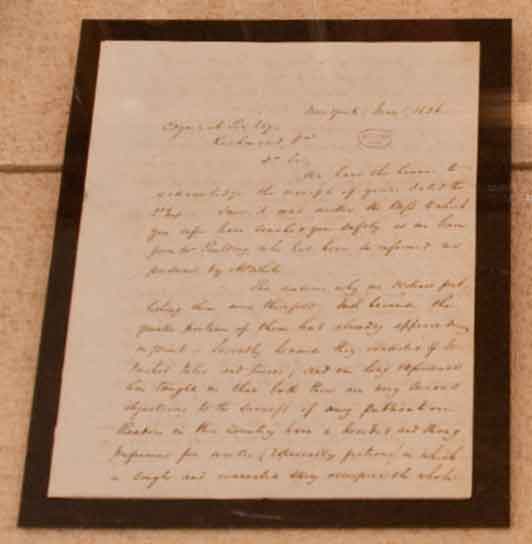 New York, June 1836
Edgar A. Poe Esq.
Richmond, Va
Dr Sir,
We have the honor to
acknowledge the receipt of yours dated the
Since it was written the MSS to which
you refer have reached you safely, as we learn
from Mr Paulding, who has been so informed we
presume by Mr White.
The reasons why we declined pub-
lishing them were threefold. First because the
greater portion of them had already appeared
in print — Secondly because they consisted of de-
tached tales and pieces; and our long experience
has taught us that both these are very serious
objections to the success of any publication.
Readers in this country have a decided and strong
preference for works, (especially fiction) in which
a single and connected story occupies the whole